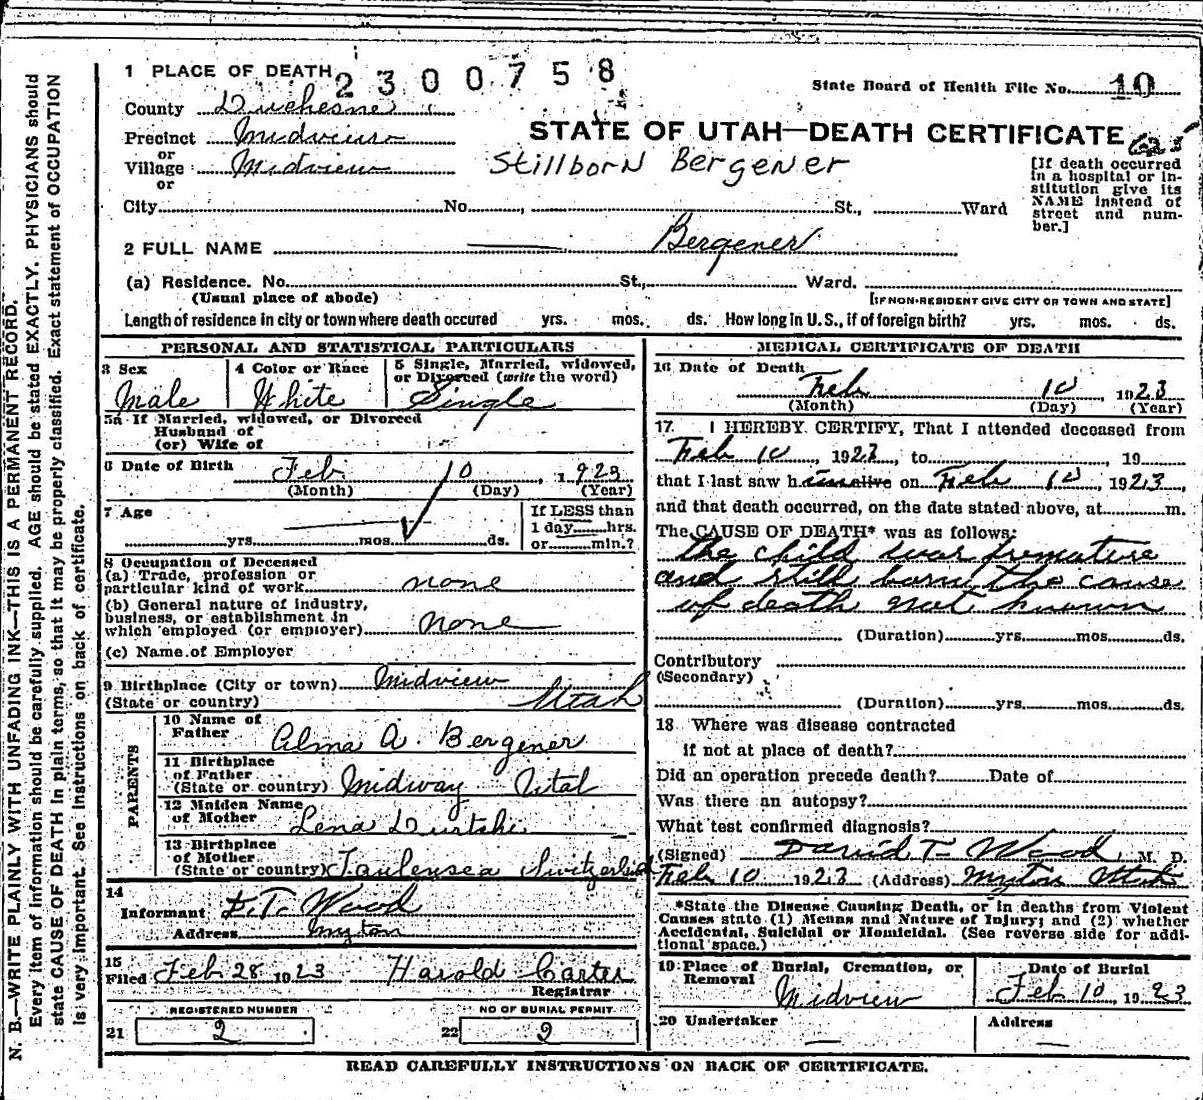 1 PLACE OF DEATH 2300758
State Board of Health File No. 10
County Duchesne
STATE OF UTAH—DEATH CERTIFICATE
Precinct Midview
or
Village Midview
or
Stillborn Bergener
[If death occurred
in a hospital or in-
stitution give its
NAME instead of
street and num-
ber.]
City No. , St., Ward
2 FULL NAME Bergener
(a) Residence. No. St., Ward.
(Usual place of abode) [IF NON-RESIDENT GIVE CITY OR TOWN AND STATE]
Length of residence in city or town where death occured yrs. mos. ds. How long in U. S., if of foreign birth? yrs. mos. ds.
PERSONAL AND STATISTICAL PARTICULARS
3 Sex Male
4 Color or Race White
5 Single, Married, widowed,
or Divorced (write the word)
Single
5a If Married, widowed, or Divorced
Husband of
(or) Wife of
6 Date of Birth Feb 10, 1923
(Month) (Day) (Year)
7 Age
yrs. mos. ds.
If LESS than
1 day hrs.
or min.?
8 Occupation of Deceased
(a) Trade, profession or
particular kind of work none
(b) General nature of industry,
business, or establishment in
which employed (or employer) none
(c) Name of Employer
9 Birthplace (City or town) Midview
(State or country) Utah
PARENTS
10 Name of
Father Alma A. Bergener
11 Birthplace
of Father
(State or country) Midway Utah
12 Maiden Name
of Mother Lena Durtschi
13 Birthplace
of Mother
(State or country) Faulensea Switzerland
14
Informant D. T. Wood
Address Myton
15
Filed Feb 28 1923 Harold Carter
Registrar
REGISTERED NUMBER
21 2
NO OF BURIAL PERMIT
22 2
MEDICAL CERTIFICATE OF DEATH
16 Date of Death
Feb 10 1923
(Month) (Day) (Year)
17. I HEREBY CERTIFY, That I attended deceased from
Feb 10, 1923, to , 19
that I last saw him alive on Feb 10, 1923,
and that death occurred, on the date stated above, at m.
The CAUSE OF DEATH* was as follows:
the child was premature
and still born the cause
of death not known
(Duration) yrs. mos. ds.
Contributory
(Secondary)
(Duration) yrs. mos. ds.
18 Where was disease contracted
if not at place of death?
Did an operation precede death? Date of
Was there an autopsy?
What test confirmed diagnosis?
(Signed) David T. Wood, M. D.
Feb 10 1923 (Address) Myton Utah
*State the Disease Causing Death, or in deaths from Violent
Causes state (1) Means and Nature of Injury; and (2) whether
Accidental, Suicidal or Homicidal. (See reverse side for addi-
tional space.)
19 Place of Burial, Cremation, or
Removal
Midview
Date of Burial
Feb 10, 1923
20 Undertaker
Address
READ CAREFULLY INSTRUCTIONS ON BACK OF CERTIFICATE.
N. B.—WRITE PLAINLY WITH UNFADING INK—THIS IS A PERMANENT RECORD.
Every item of information should be carefully supplied. AGE should be stated EXACTLY. PHYSICIANS should
state CAUSE OF DEATH in plain terms, so that it may be properly classified. Exact statement of OCCUPATION
is very important. See instructions on back of certificate.